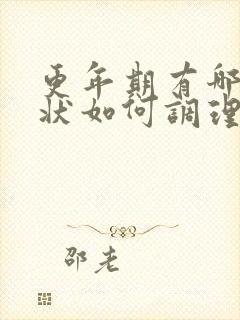 更年期有哪
状如何調理
邵老